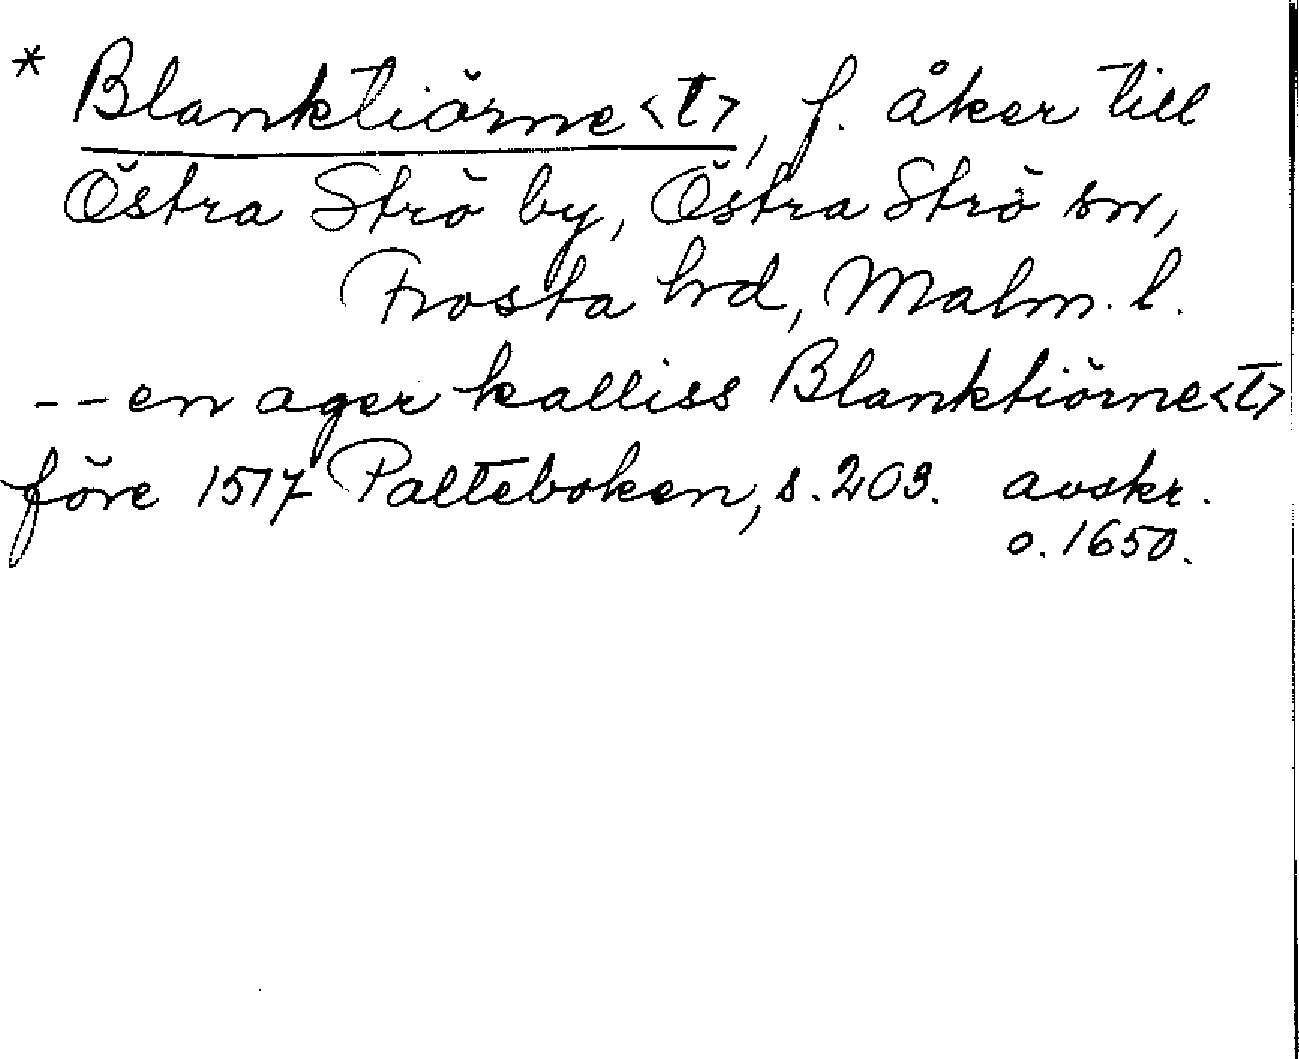 * Blanktiörne<t>, f. åker till
Östra Strö by, Östra Strö sn,
Frosta hd, Malm. l.
-- en ager kalliss Blanktiörne<t>
före 1517 Palteboken, s. 203. avskr.
o. 1650.